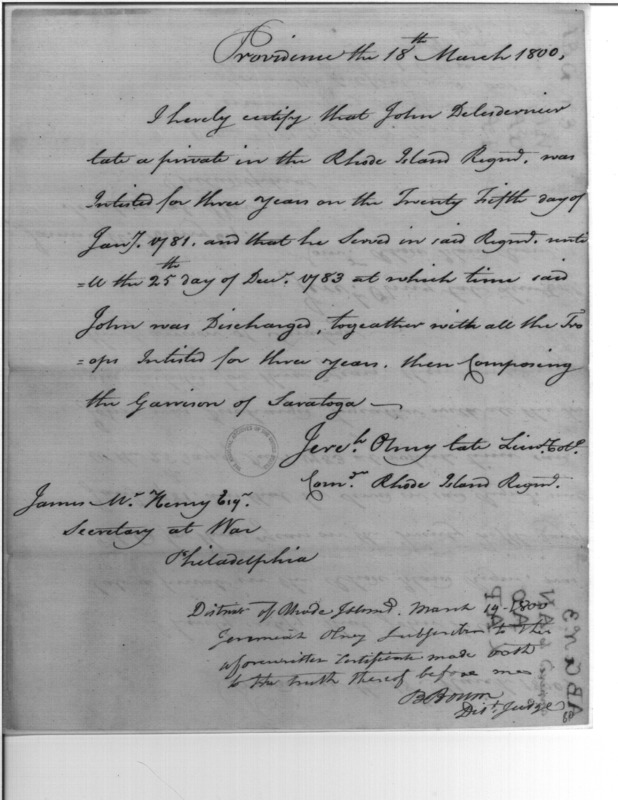 Providence the 18th March 1800,
I hereby certify that John Delesdernier
late a private in the Rhode Island Regmt. was
Intisted for three Years on the Twenty Fifth day of
Jany. 1781. and that he Served in said Regmt. unti
=ll the 25th day of Decr. 1783 at which time said
John was Discharged, togeather with all the Tro
=ops Intisted for three Years. then Composing
the Garrison of Saratoga —
Jereh. Olney late Lieut. Colo.
Comr. Rhode Island Regmt.
James Mc. Henry Esqr.
Secretary at War
Philadelphia
District of Rhode Island. March 19-1800
Jeremiah Olney Subscriber to the
aforewritten Certificate made oath
to the truth thereof before me
B Bourn
Dist Judge